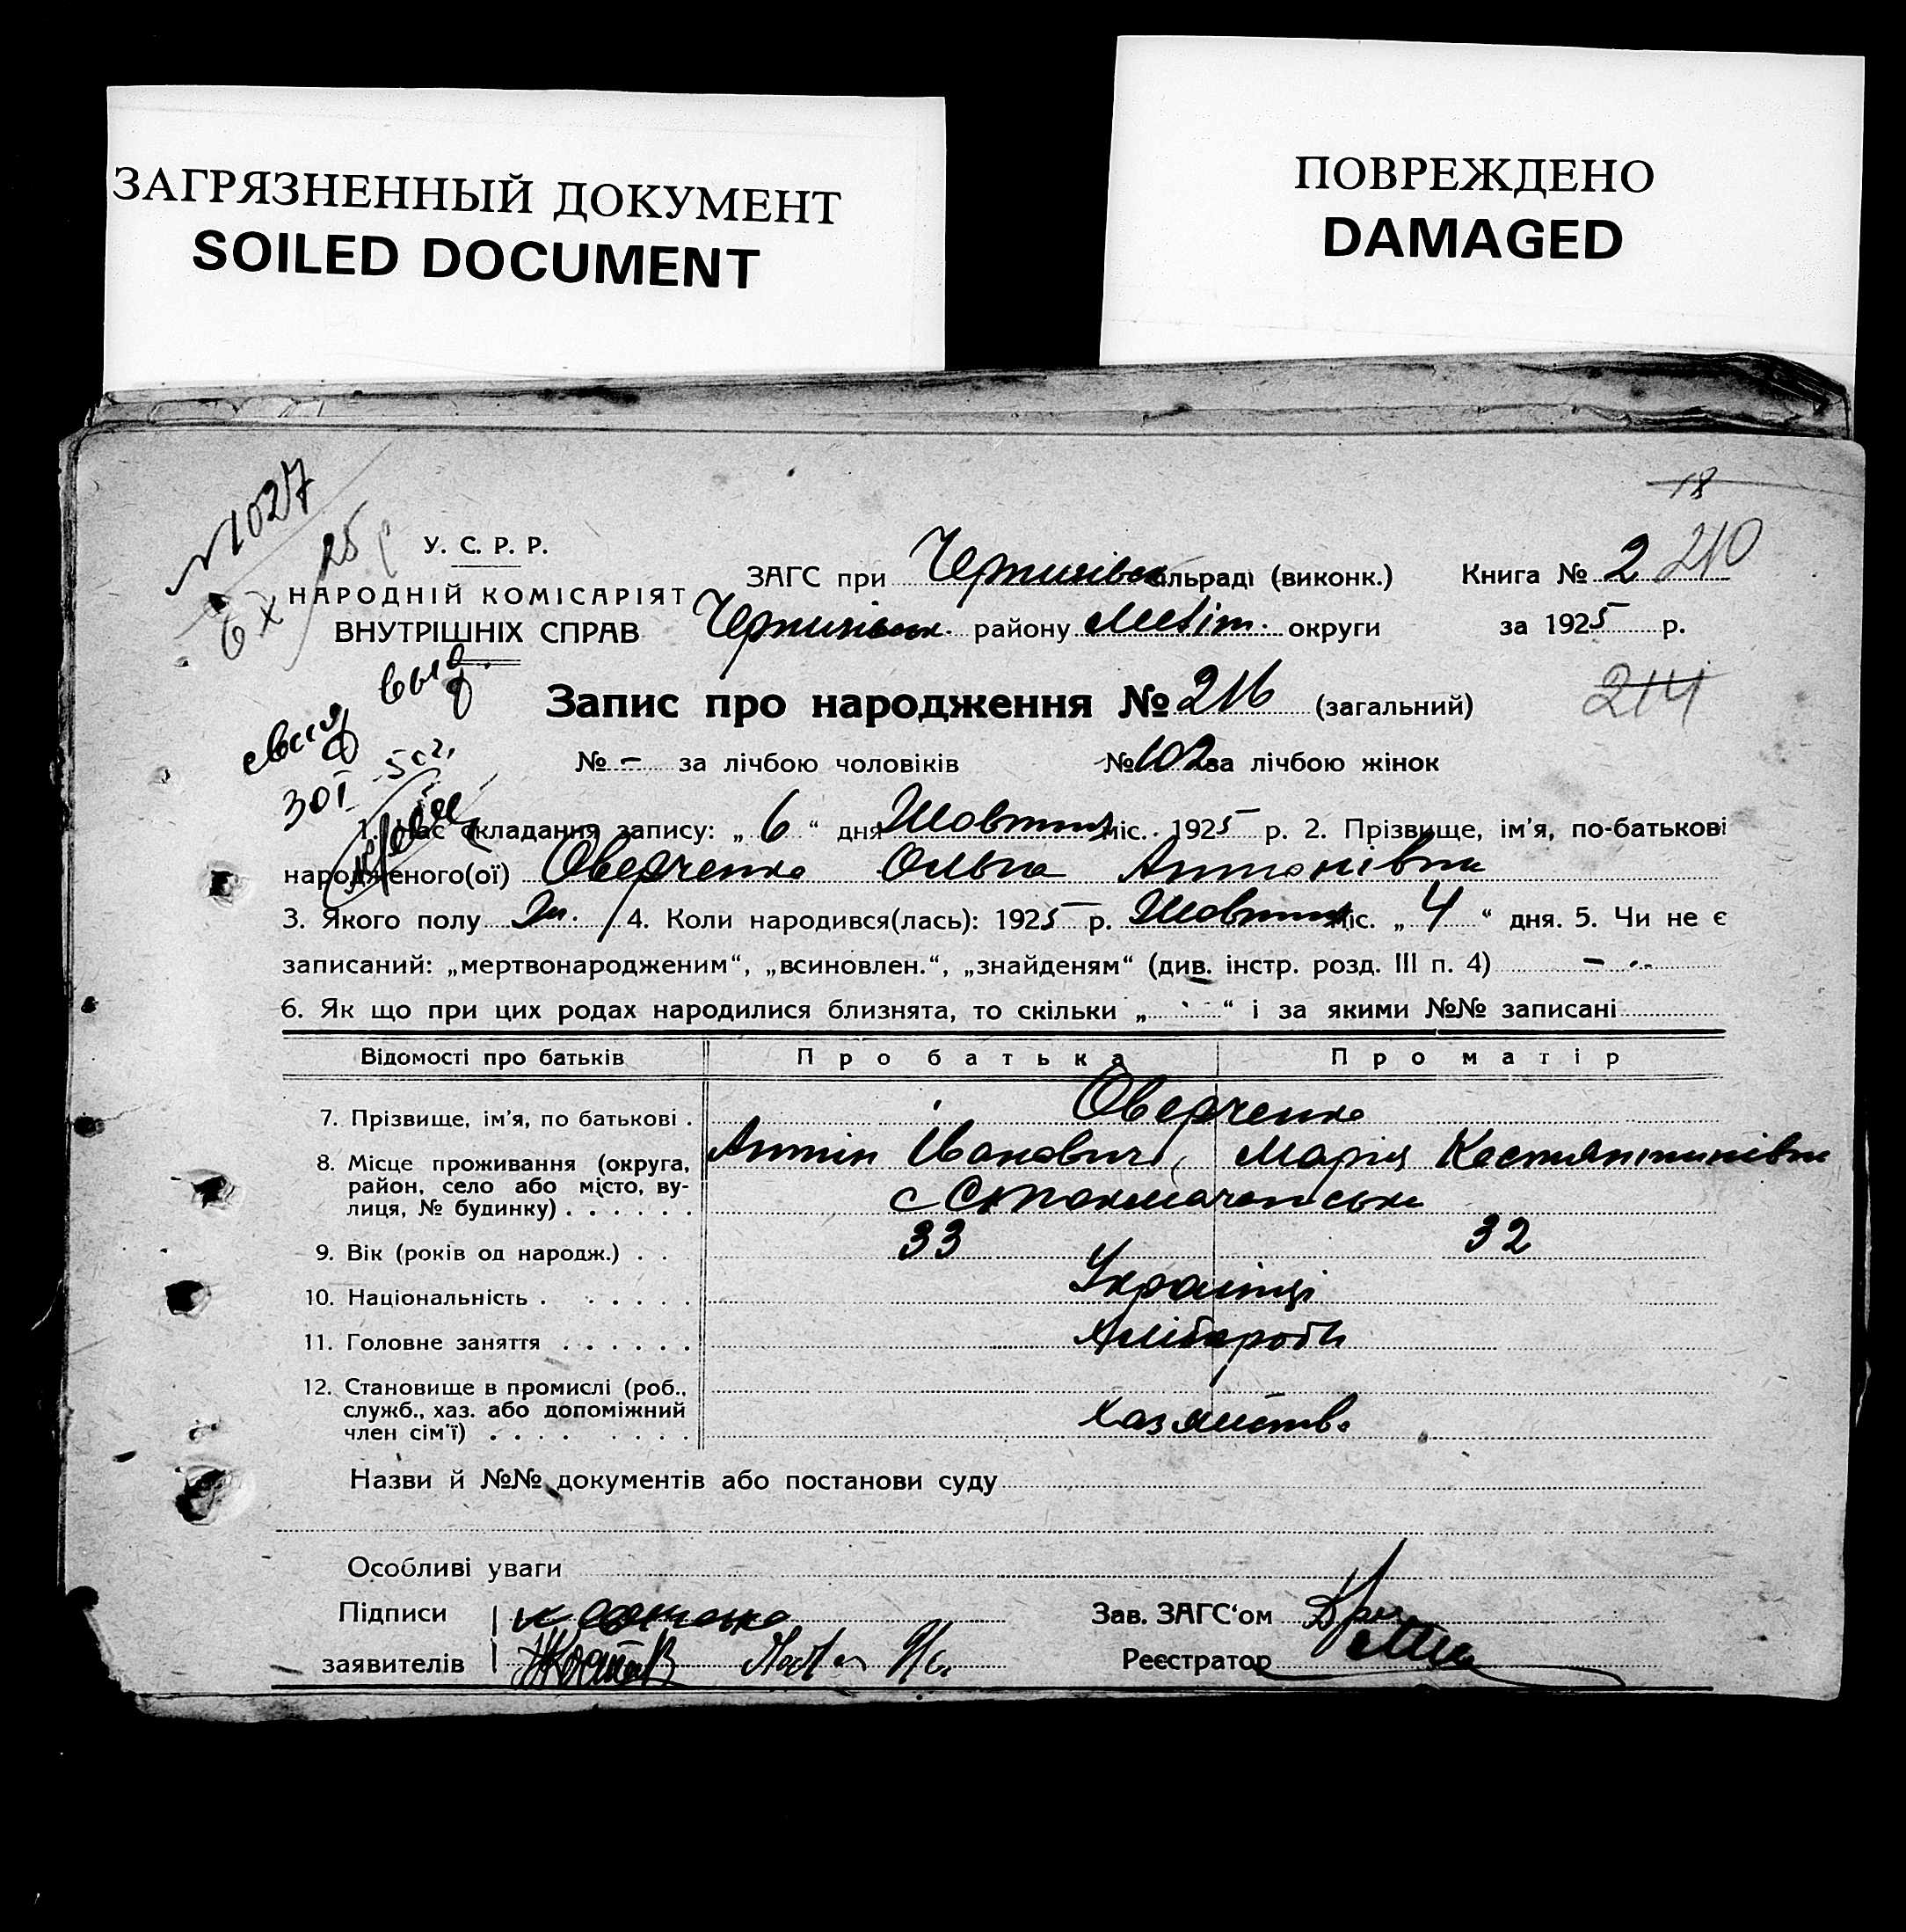 ЗАГРЯЗНЕННЫЙ ДОКУМЕНТ
SOILED DOCUMENT
ПОВРЕЖДЕНО
DAMAGED
18
№1027
25
У. С. Р. Р.
НАРОДНІЙ КОМІСАРІЯТ
ВНУТРІШНІХ СПРАВ
ЗАГС при Чернинівск сільраді (виконк.) Книга № 2 210
Чернинівськ. району Меліт. округи за 1925 р.
Запис про народження № 216 (загальний) 214
№ - за лічбою чоловіків № 102 за лічбою жінок
1. Час складання запису: „ 6 “ дня Жовтня міс. 1925 р. 2. Прізвище, ім’я, по-батькові
народженого(ої) Оверченко Ольга Антонівна
3. Якого полу ж. 4. Коли народився(лась): 1925 р. Жовтня міс. „ 4 “ дня. 5. Чи не є
записаний: „мертвонародженим“, „всиновлен.“, „знайденям“ (див. інстр. розд. III п. 4) -
6. Як що при цих родах народилися близнята, то скільки „ “ і за якими №№ записані
Відомості про батьків Про батька Про матір
7. Прізвище, ім’я, по батькові . Оверченко
Антін Іванович, Марія Костянтинівна
8. Місце проживання (округа,
район, село або місто, ву-
лиця, № будинку) . . . . . . с
9. Вік (років од народж.) . . 33 32
10. Національність . . . . . . Українці
11. Головне заняття . . . . . . Хлібороби
12. Становище в промислі (роб.,
служб., хаз. або допоміжний
член сім’ї) . . . . . . . . Хазяйство
Назви й №№ документів або постанови суду
Особливі уваги
Підписи
заявителів
Зав. ЗАГС‘ом
Реєстратор